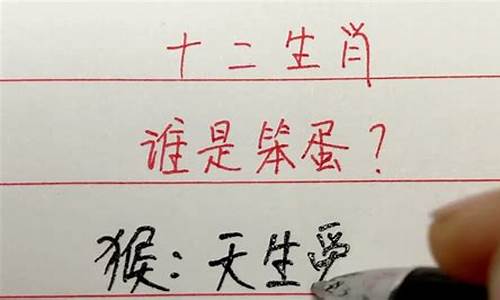 十二生肖
谁是笨蛋？
猴：天生